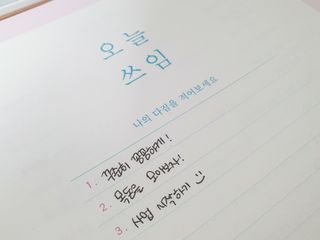 오늘
쓰임
나의 다짐을 적어보세요
1. 꾸준히 꼼꼼하게!
2. 목돈을 모아보자!
3. 사업 시작하기